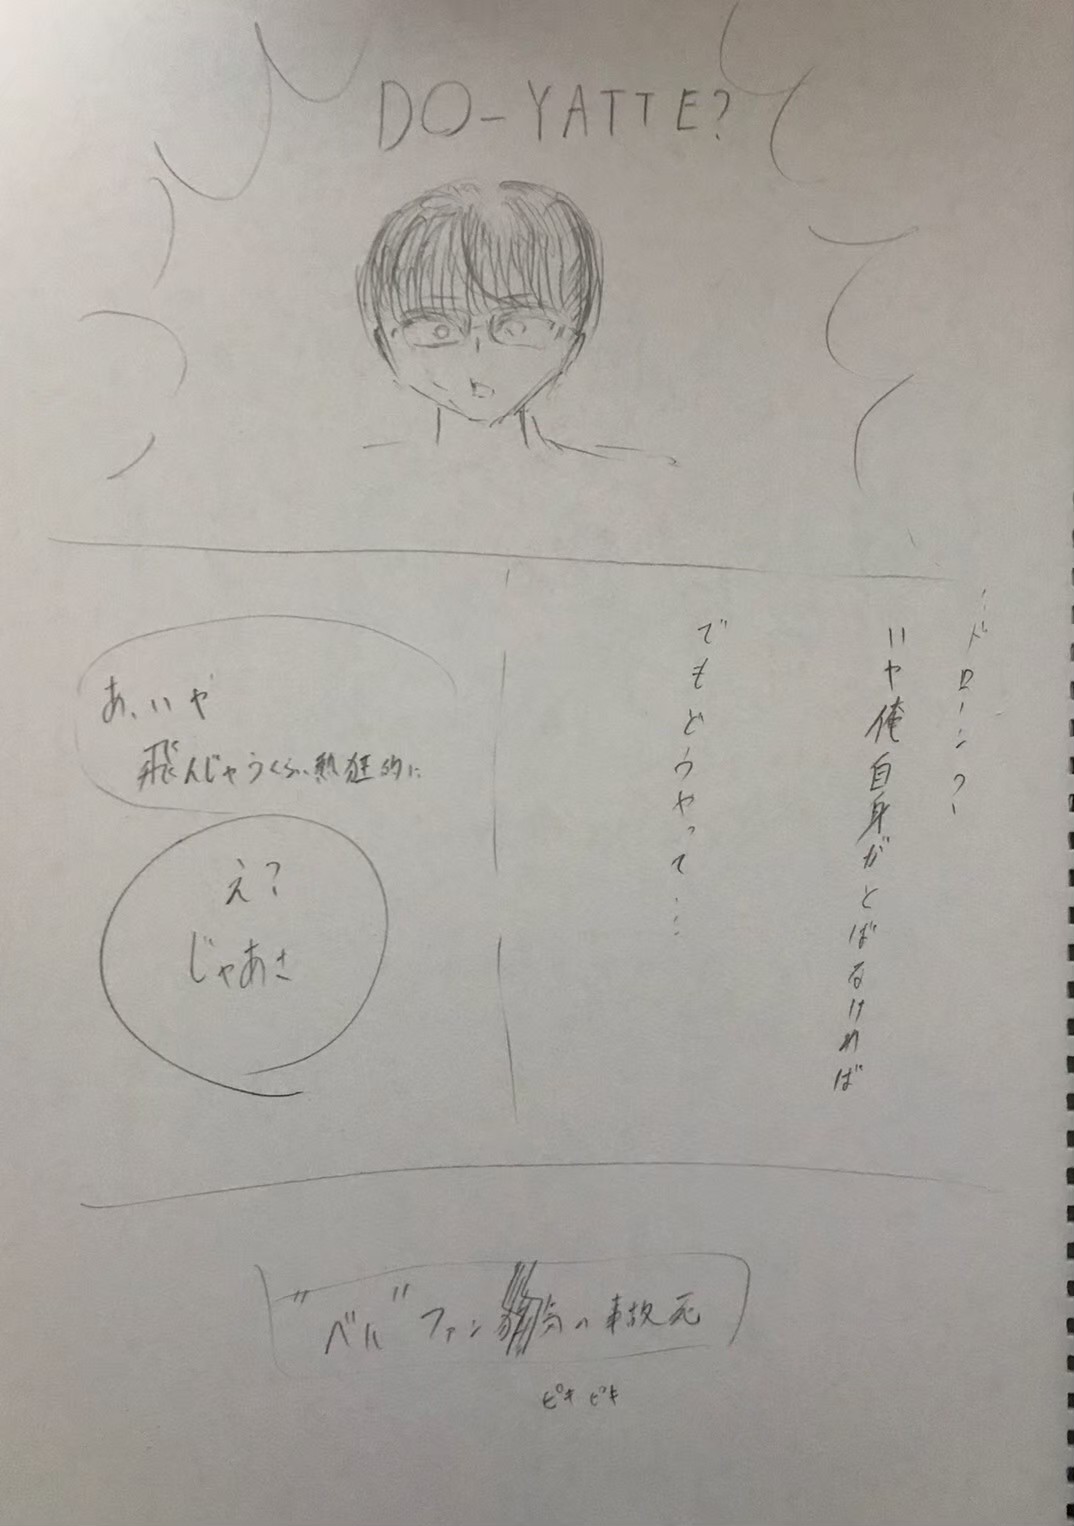 DO-YATTE?
…ドローン?
いや俺自身がとばるければ
でもどうやって…
あ、いや
飛んじゃうくらい熱狂的に
え?
じゃあさ
"ベル"ファン
の事故死
ピキ ピキ